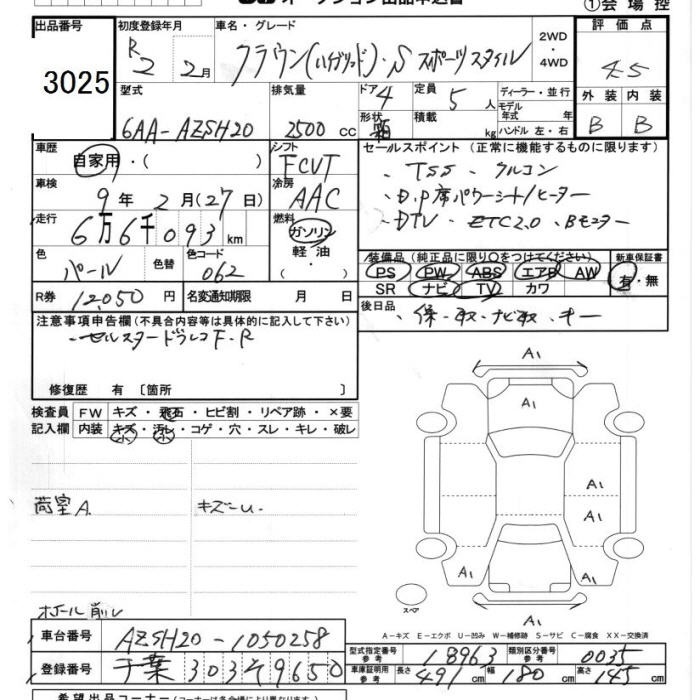 ①会場控
出品番号
3025
初度登録年月
R2 2月
車名・グレード
クラウン(ハイブリッド)・S スポーツスタイル
2WD・4WD
評価点
4.5
型式
6AA-AZSH20
排気量
2500 cc
ドア 4
形状 箱
定員 5 人
積載 kg
ディーラー・並行
モデル年式 年
ハンドル 左・右
外装 内装
B B
車歴
自家用・( )
シフト
FCVT
車検
9年 2月(27日)
冷房
AAC
走行
6万6千093km
燃料
ガソリン
軽油
・( )
色
パール
色替
色コード
062
R券 12,050 円
名変通知期限 月 日
セールスポイント (正常に機能するものに限ります)
・TSS ・クルコン
・D.P席パワーシート/ヒーター
・DTV ・ETC2.0 ・Bモニター
装備品 (純正品に限り○をつけてください)
PS PW ABS エアB AW
SR ナビ TV カワ
新車保証書
有・無
後日品
・保・取・ナビ取・キー
注意事項申告欄 (不具合内容等は具体的に記入して下さい)
・セルスタードラレコF.R
修復歴 有 [箇所 ]
検査員 FW キズ・飛石・ヒビ割・リペア跡・×要
記入欄 内装 キズ・汚レ・コゲ・穴・スレ・キレ・破レ
小 小
荷室A.
キズ
ホイール削レ
A1
A1
A1
A1
A1
A1
A1
スペア
A-キズ E-エクボ U-凹み W-補修跡 S-サビ C-腐食 XX-交換済
車台番号 AZSH20-1050258
登録番号 千葉 303 4 9650
型式指定番号 参考 18963
類別区分番号 参考 0035
車庫証明用 参考 長さ 491 cm 幅 180 cm 高さ 145 cm
希望出品コーナー